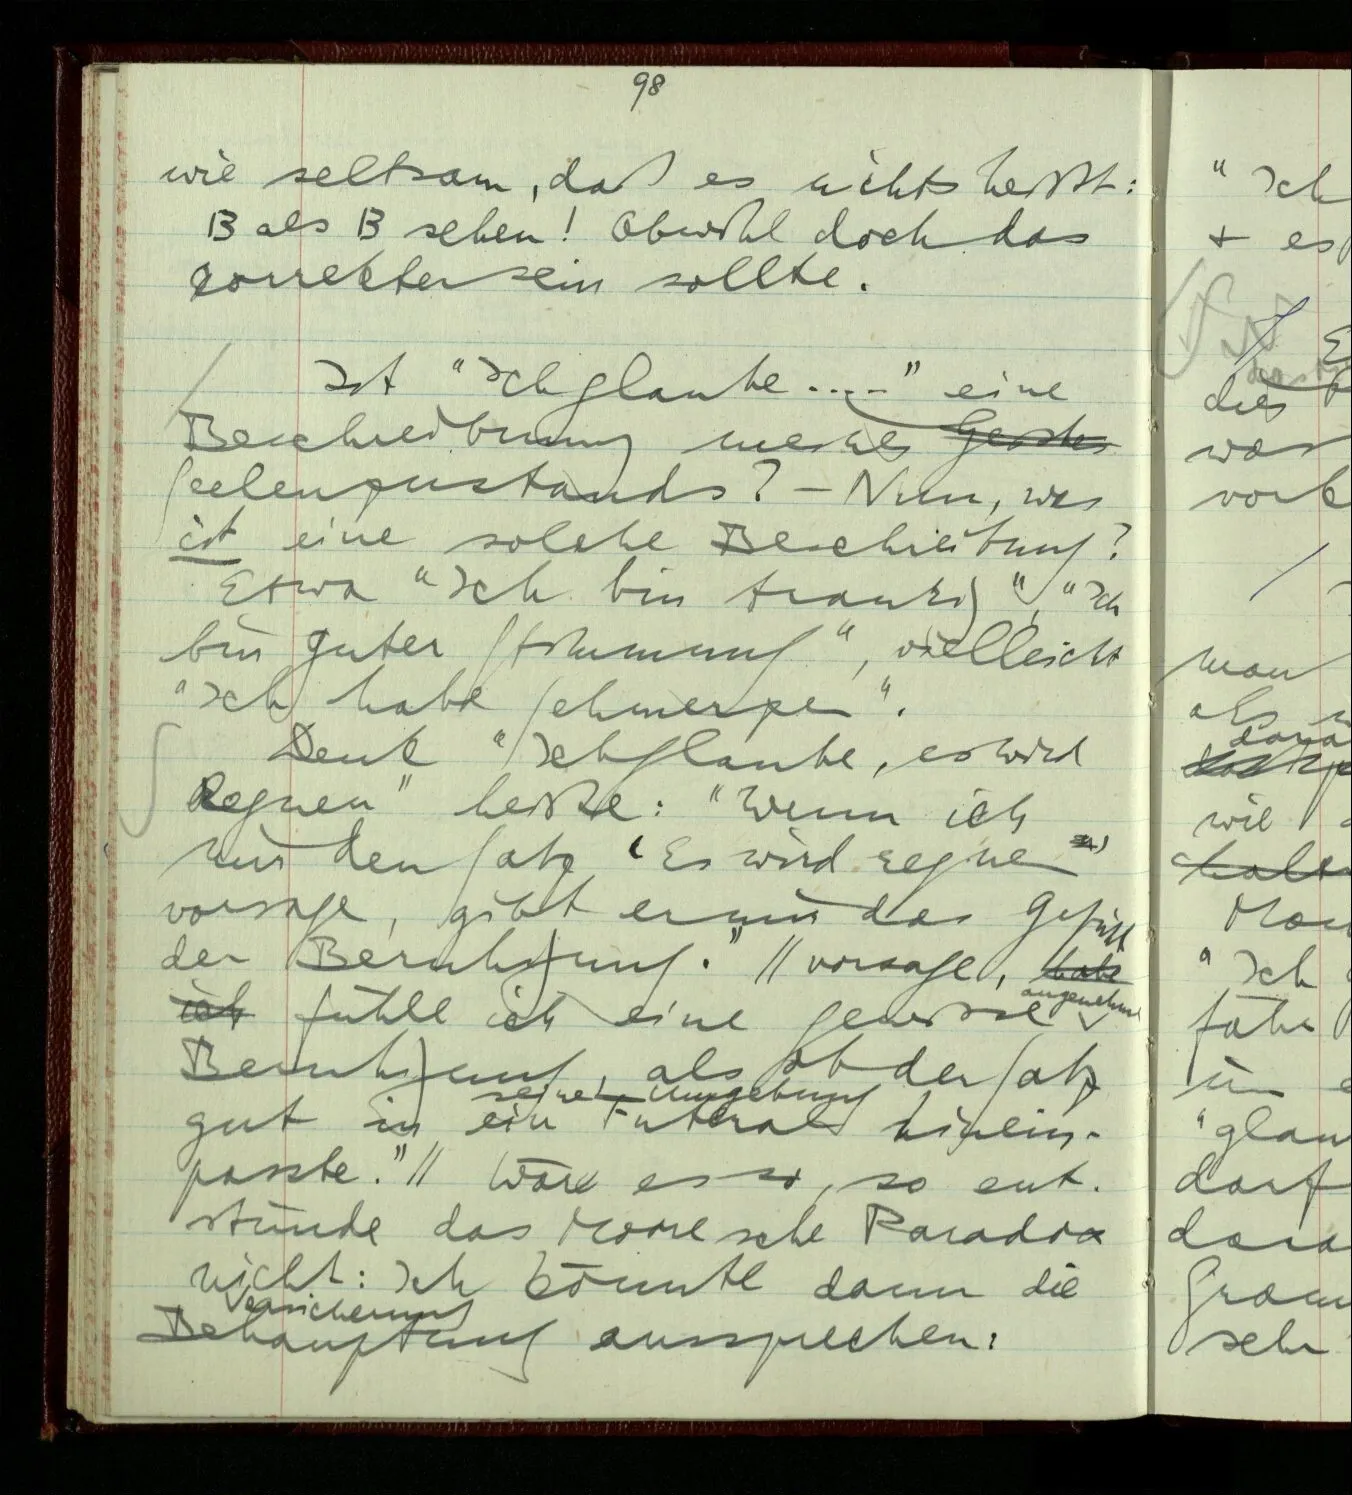 98
wie seltsam, daß es nichts heißt:
B als B sehen! Obwohl doch das
correkter sein sollte.
Ist "Ich glaube ...." eine
Beschreibung meines Geistes
Seelenzustands? – Nun, was
ist eine solche Beschreibung?
Etwa "Ich bin traurig", "Ich
bin guter Stimmung", vielleicht
"Ich habe Schmerzen".
Denk "Ich glaube, es wird
Regnen" heiße: "Wenn ich
mir den Satz 'Es wird regnen'
vorsage, gibt er mir das Gefühl
der Beruhigung." // vorsage, habe
angenehme
ich fühle ich eine gewisse
Beruhigung, als ob der Satz
seine Umgebung
gut in ein Futteral hinein-
passte." // Wäre es so, so ent-
stünde das Mooresche Paradox
nicht: Ich könnte dann die
Versicherung
Behauptung aussprechen:
"Ich
+ es
dies
was
vork
man
als
wie
"Ich
in
"glau
darf
Gram
sehr